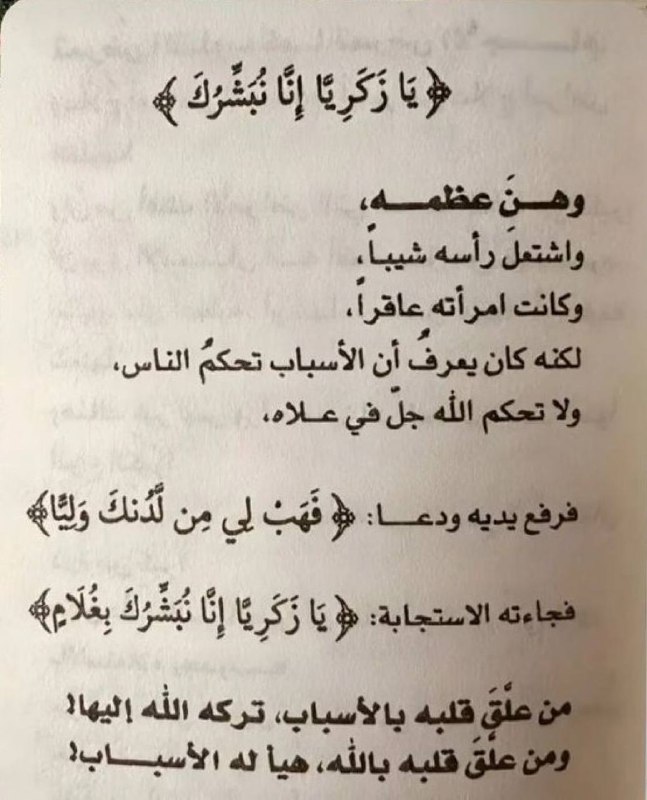 ﴿ يَا زَكَرِيَّا إِنَّا نُبَشِّرُكَ ﴾
وهـنَ عظمـــه،
واشتعلَ رأسه شيباً،
وكانت امرأته عاقراً،
لكنه كان يعرفُ أن الأسباب تحكمُ الناس،
ولا تحكم الله جلّ في عـلاه،
فرفع يديه ودعـــا: ﴿ فَهَبْ لِي مِن لَّدُنكَ وَلِيًّا﴾
فجاءته الاستجابة: ﴿ يَا زَكَرِيَّا إِنَّا نُبَشِّرُكَ بِغُلَامٍ﴾
من علّقَ قلبه بالأسباب، تركه الله إليها!
ومن علّقَ قلبه بالله، هيأ له الأسبـــاب!